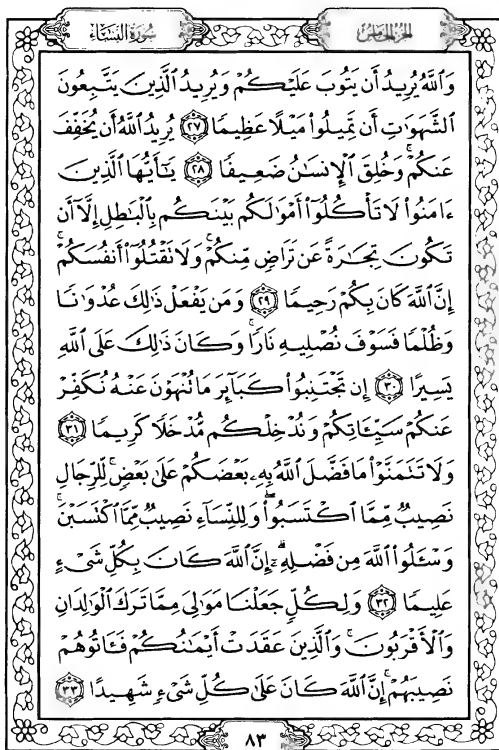 سُورَةُ النِّسَاءِ
الجزء الخامس
وَٱللَّهُ يُرِيدُ أَن يَتُوبَ عَلَيْكُمْ وَيُرِيدُ ٱلَّذِينَ يَتَّبِعُونَ
ٱلشَّهَوَٰتِ أَن تَمِيلُوا۟ مَيْلًا عَظِيمًا ٢٧ يُرِيدُ ٱللَّهُ أَن يُخَفِّفَ
عَنكُمْ ۚ وَخُلِقَ ٱلْإِنسَٰنُ ضَعِيفًا ٢٨ يَٰٓأَيُّهَا ٱلَّذِينَ
ءَامَنُوا۟ لَا تَأْكُلُوٓا۟ أَمْوَٰلَكُم بَيْنَكُم بِٱلْبَٰطِلِ إِلَّآ أَن
تَكُونَ تِجَٰرَةً عَن تَرَاضٍ مِّنكُمْ ۚ وَلَا تَقْتُلُوٓا۟ أَنفُسَكُمْ ۚ
إِنَّ ٱللَّهَ كَانَ بِكُمْ رَحِيمًا ٢٩ وَمَن يَفْعَلْ ذَٰلِكَ عُدْوَٰنًا
وَظُلْمًا فَسَوْفَ نُصْلِيهِ نَارًا ۚ وَكَانَ ذَٰلِكَ عَلَى ٱللَّهِ
يَسِيرًا ٣٠ إِن تَجْتَنِبُوا۟ كَبَآئِرَ مَا تُنْهَوْنَ عَنْهُ نُكَفِّرْ
عَنكُمْ سَيِّـَٔاتِكُمْ وَنُدْخِلْكُم مُّدْخَلًا كَرِيمًا ٣١
وَلَا تَتَمَنَّوْا۟ مَا فَضَّلَ ٱللَّهُ بِهِۦ بَعْضَكُمْ عَلَىٰ بَعْضٍ ۚ لِّلرِّجَالِ
نَصِيبٌ مِّمَّا ٱكْتَسَبُوا۟ ۖ وَلِلنِّسَآءِ نَصِيبٌ مِّمَّا ٱكْتَسَبْنَ ۚ
وَسْـَٔلُوا۟ ٱللَّهَ مِن فَضْلِهِۦٓ ۗ إِنَّ ٱللَّهَ كَانَ بِكُلِّ شَىْءٍ
عَلِيمًا ٣٢ وَلِكُلٍّ جَعَلْنَا مَوَٰلِىَ مِمَّا تَرَكَ ٱلْوَٰلِدَانِ
وَٱلْأَقْرَبُونَ ۚ وَٱلَّذِينَ عَقَدَتْ أَيْمَٰنُكُمْ فَـَٔاتُوهُمْ
نَصِيبَهُمْ ۚ إِنَّ ٱللَّهَ كَانَ عَلَىٰ كُلِّ شَىْءٍ شَهِيدًا ٣٣
٨٣